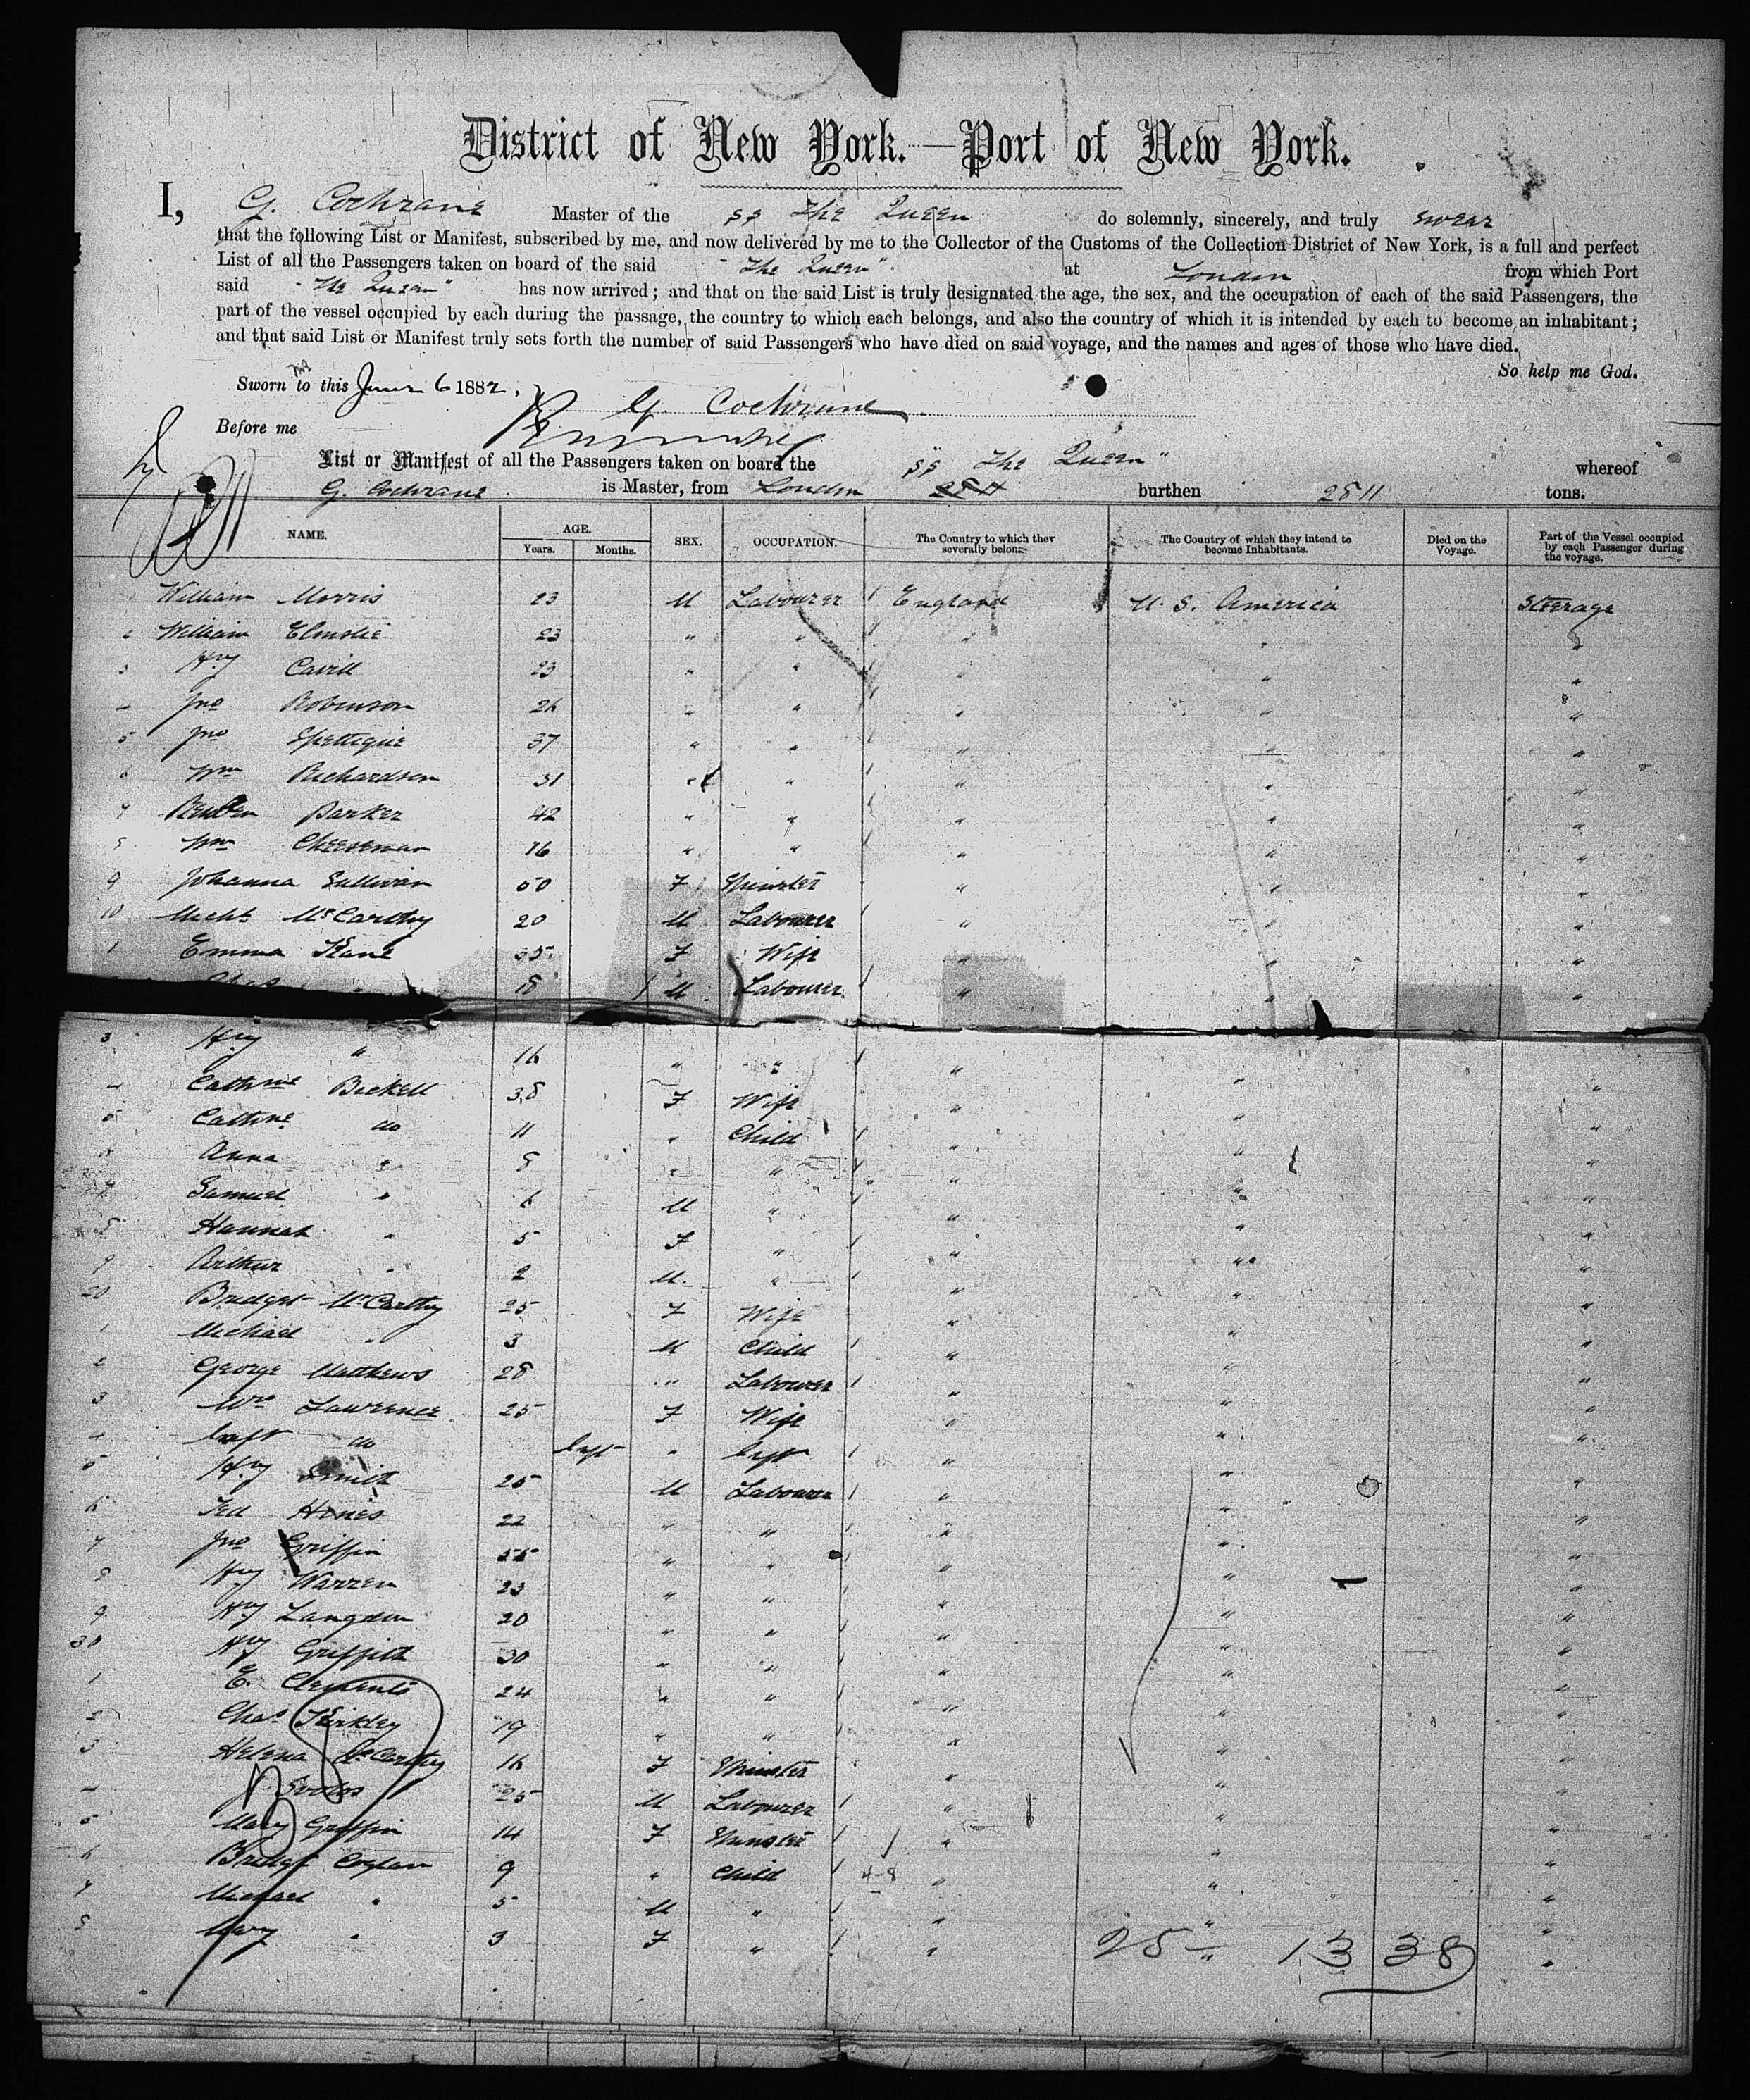 District of New York.—Port of New York.
I, G. Cochrane Master of the SS The Queen do solemnly, sincerely, and truly swear
that the following List or Manifest, subscribed by me, and now delivered by me to the Collector of the Customs of the Collection District of New York, is a full and perfect
List of all the Passengers taken on board of the said "The Queen" at London from which Port
said "The Queen" has now arrived; and that on the said List is truly designated the age, the sex, and the occupation of each of the said Passengers, the
part of the vessel occupied by each during the passage, the country to which each belongs, and also the country of which it is intended by each to become an inhabitant;
and that said List or Manifest truly sets forth the number of said Passengers who have died on said voyage, and the names and ages of those who have died.
So help me God.
Sworn to this June 6 1882,
G. Cochrane
Before me
List or Manifest of all the Passengers taken on board the SS The Queen" whereof
G. Cochrane is Master, from London burthen 2811 tons.
NAME. AGE. SEX. OCCUPATION. The Country to which they severally belong. The Country of which they intend to become Inhabitants. Died on the Voyage. Part of the Vessel occupied by each Passenger during the voyage.
Years. Months.
1 William Morris 23 M Labourer England U. S. America Steerage
2 William Elmslie 23 " " " " "
3 Hry Cavill 23 " " " " "
4 Jno Robinson 26 " " " " "
5 Jno Spettigue 37 " " " " "
6 Wm Richardson 31 " " " " "
7 Reuben Parker 42 " " " " "
8 Wm Cheeseman 16 " " " " "
9 Johanna Sullivan 50 F Spinster " " "
10 Michl McCarthy 20 M Labourer " " "
1 Emma Kane 35 F Wife " " "
Chas " 18 M Labourer " " "
3 Hry " 16 " " " " "
4 Cathrne Beckell 38 F Wife " " "
5 Cathne do 11 " Child " " "
6 Anna " 8 " " " " "
7 Samuel " 6 M " " " "
8 Hannah " 5 F " " " "
9 Arthur " 2 M. " " " "
20 Bridget McCarthy 25 F Wife " " "
1 Michael " 3 M Child " " "
2 George Matthews 28 " Labourer " " "
3 Mrs Lawrence 25 F Wife " " "
4 Inft do Inft " Inft " " "
5 Hry Smith 25 M Labourer " " "
6 Ted Hines 22 " " " " "
7 Jno Griffin 55 " " " " "
8 Hry Warren 23 " " " " "
9 Hry Langdon 20 " " " " "
30 Hry Griffith 30 " " " " "
1 E. Clements 24 " " " " "
2 Chas Kirkley 19 " " " " "
3 Helena McCarthy 16 F Spinster " " "
4 25 M Labourer " " "
5 Mary Griffin 14 F Spinster " " "
6 Bridgt Coglan 9 " Child 4-8 " " "
7 Michael " 5 M " " " "
8 Mary " 3 F " " " "
25 - 13 38